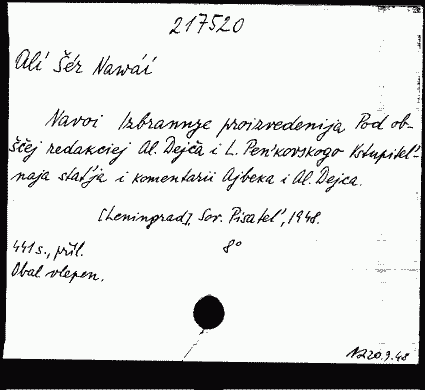 217520
Alí Šér Nawáí
Navoi Izbrannye proizvedenija Pod ob-
ščej redakciej Al. Dejča i L. Pen'kovskogo Vstupitel'-
naja stat'ja i komentarii Ajbeka i Al. Dejca.
[Leningrad], Sov. Pisatel', 1948.
441 s., příl. 8°
Obal vlepen.
20.9.48